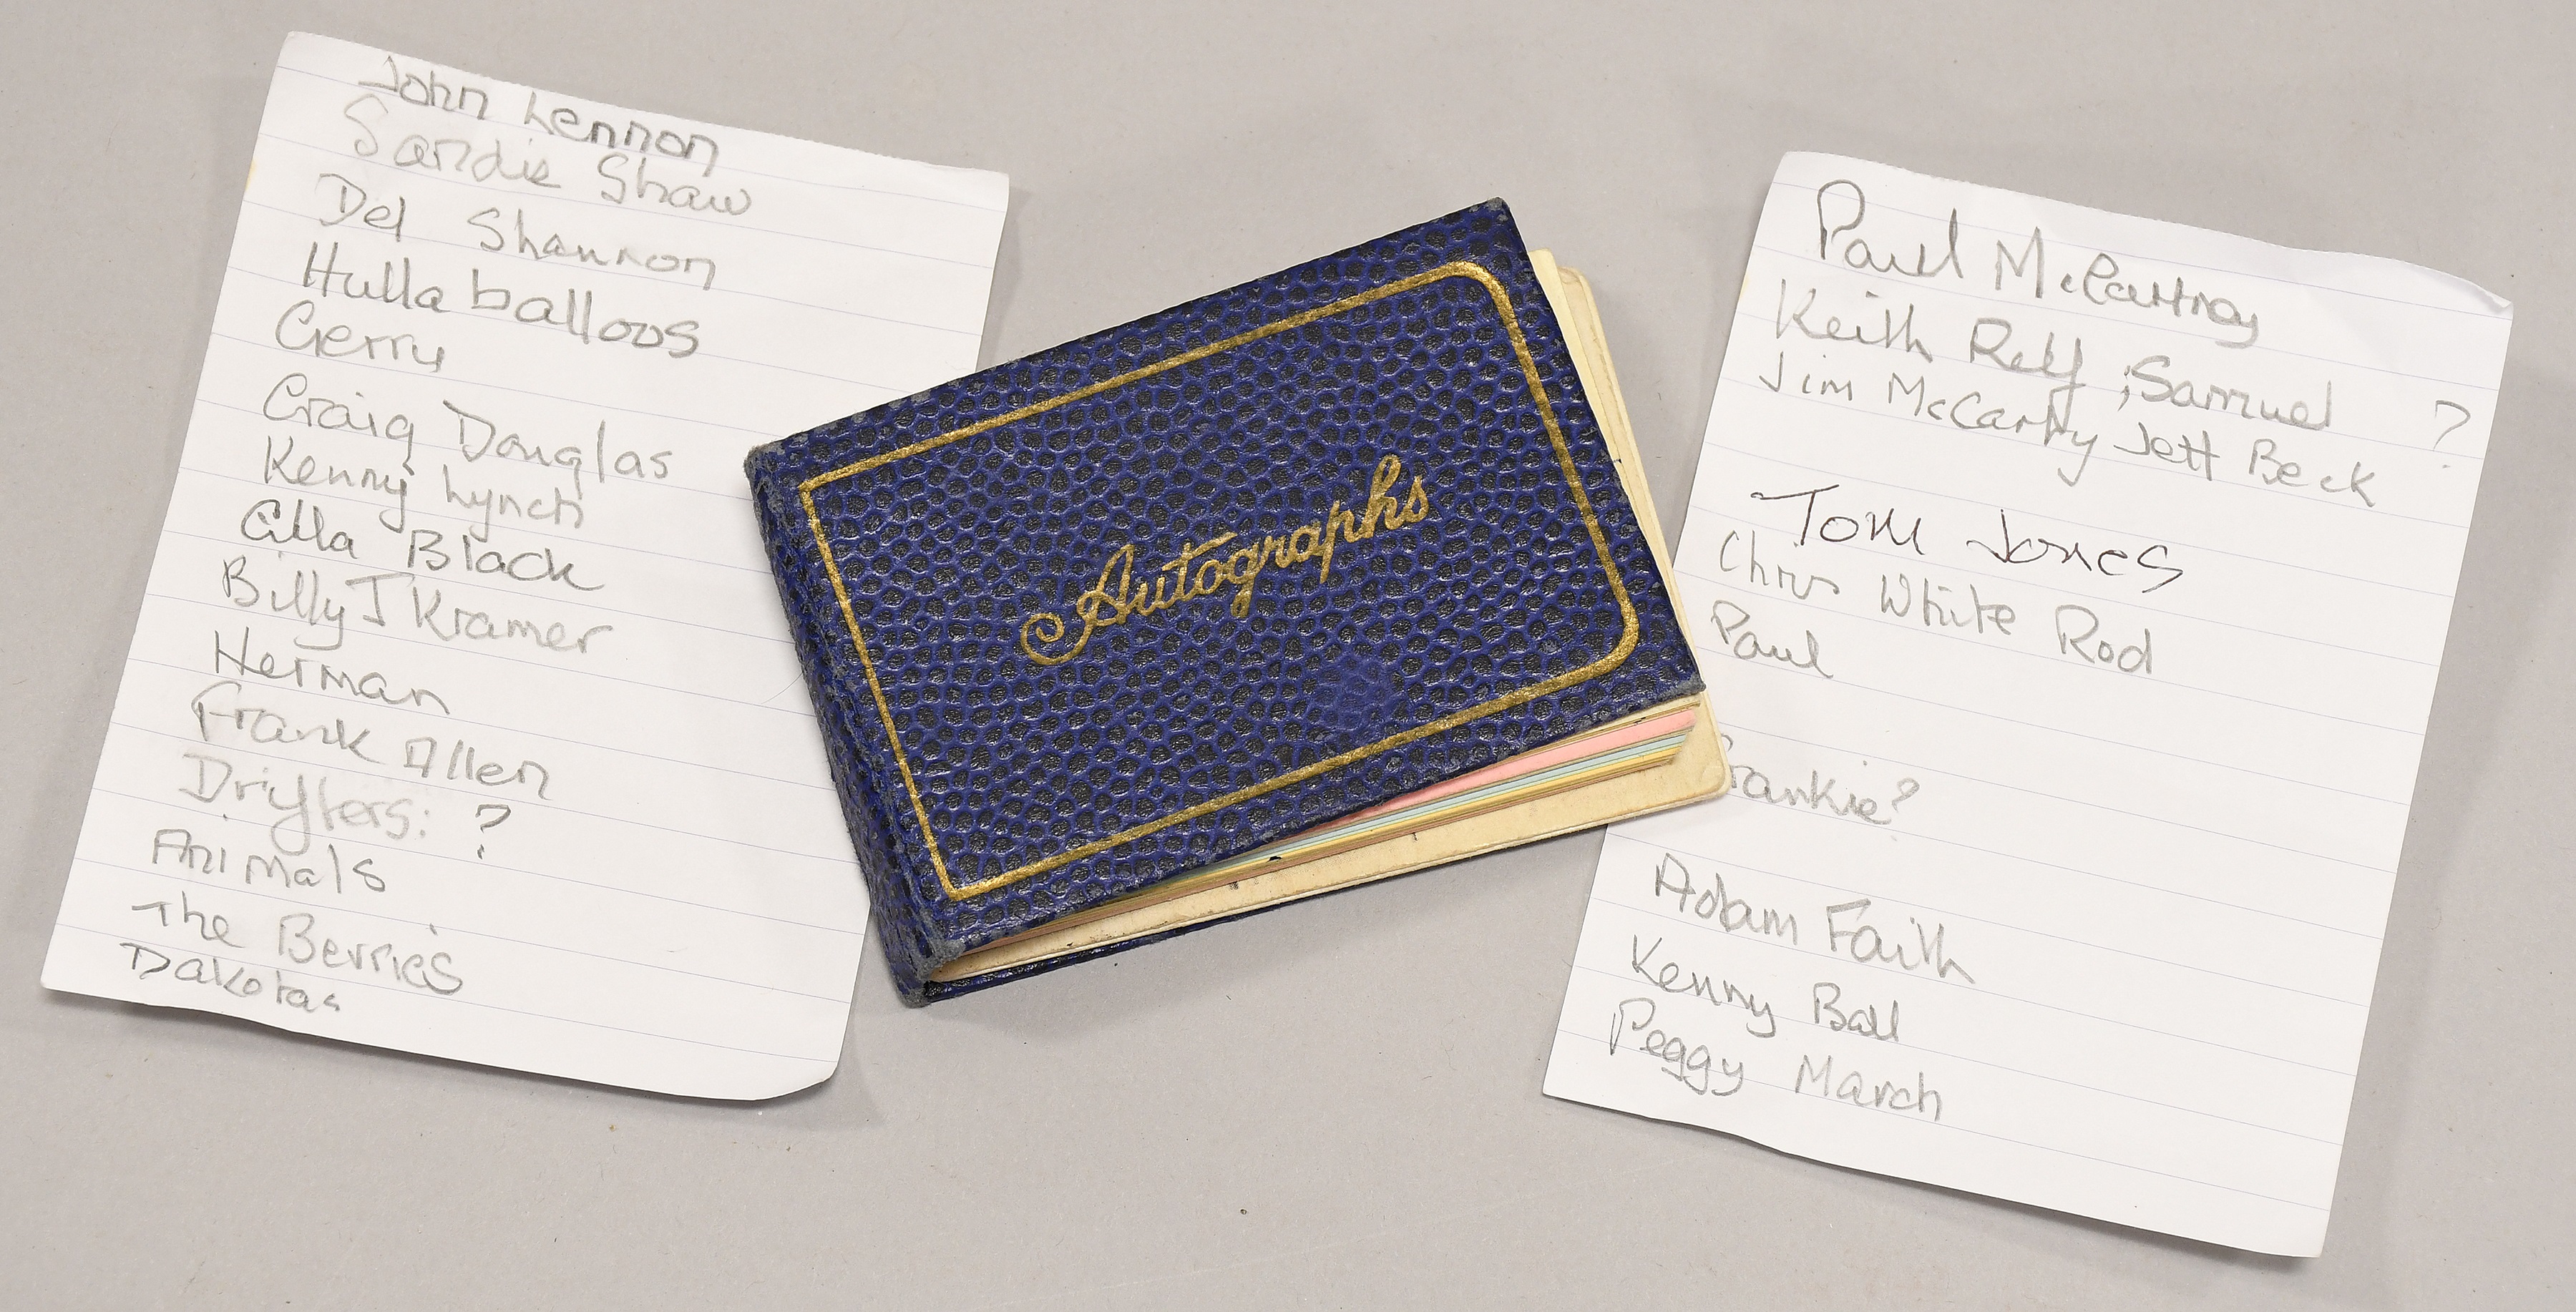 John Lennon
Sandie Shaw
Del Shannon
Hullaballoos
Gerry
Craig Douglas
Kenny Lynch
Cilla Black
Billy J Kramer
Herman
Frank Allen
Drifters: ?
Animals
The Berries
Dakotas
Autographs
Paul McCartney
Keith Relf ; Samuel ?
Jim McCarty Jeff Beck
Tom Jones
Chris White Rod
Paul
rankie?
Adam Faith
Kenny Ball
Peggy March